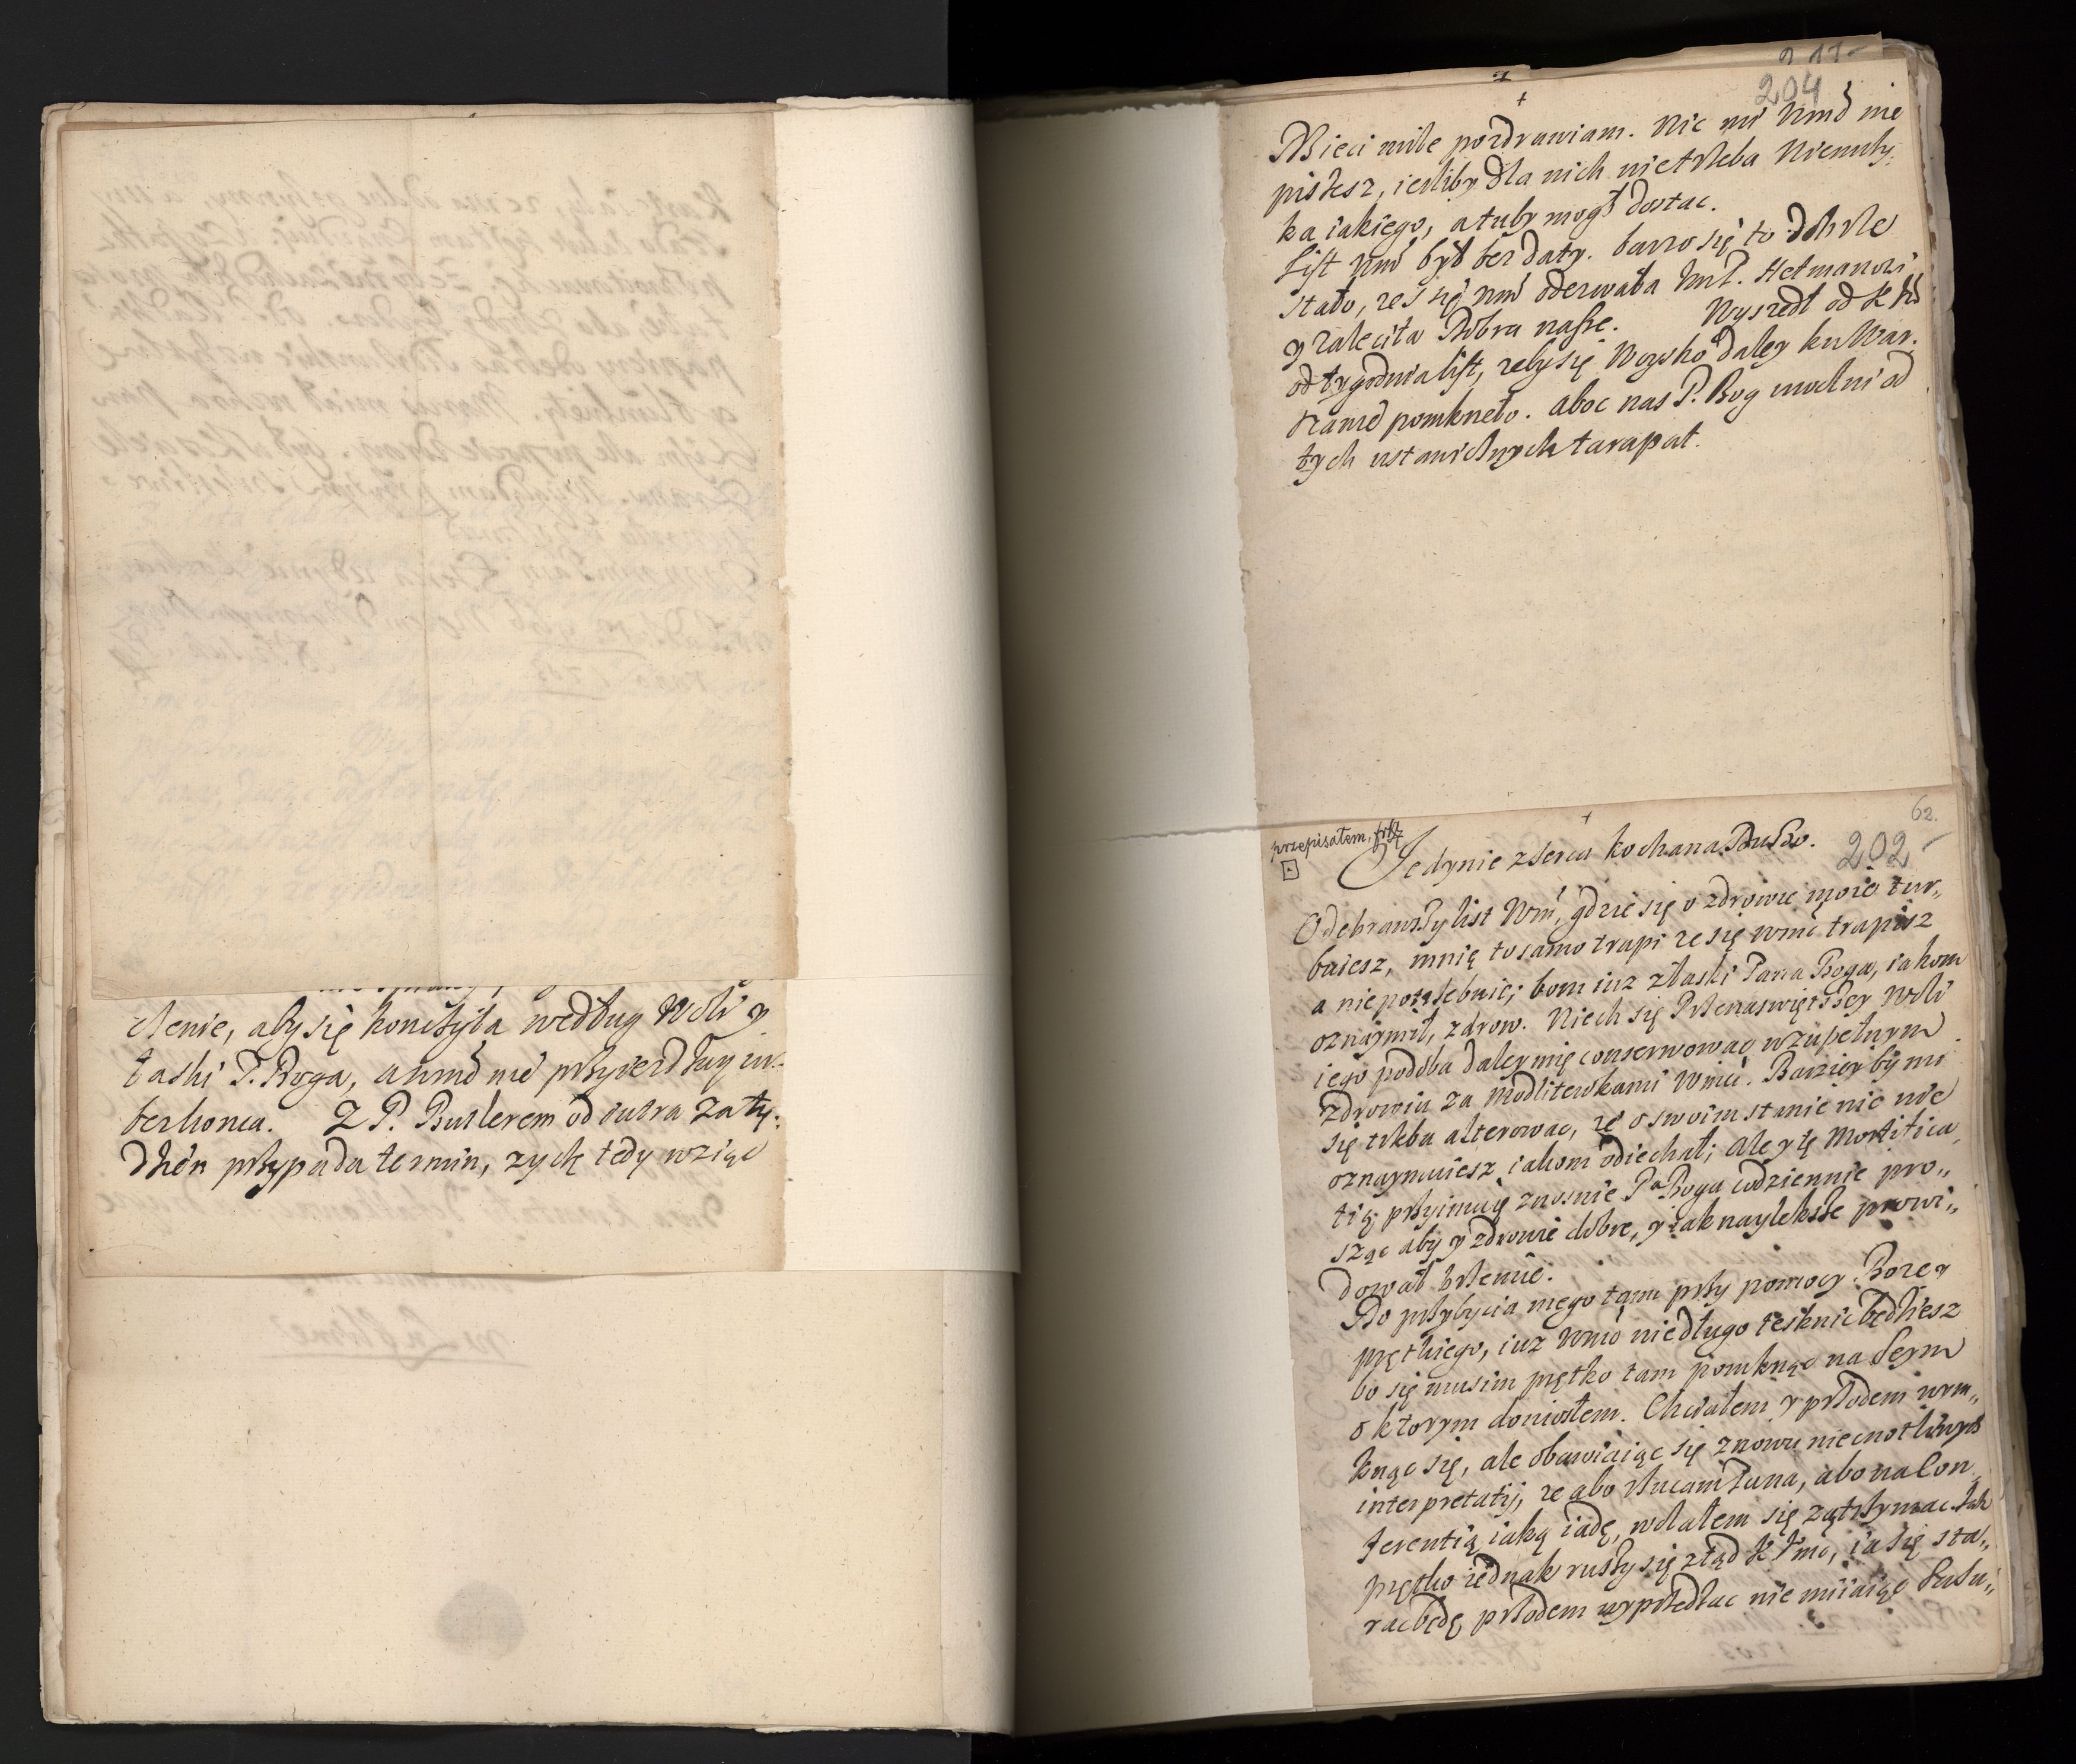 czenie, aby się konczyła według Woli y
łaski P. Boga, a wmć nie przyiezdzay iu.
bez konca. Z P. Butlerem od iutra za ty:
dzień przypada termin, zyczę tedy wziąc
217
204
Dzieci mile pozdrawiam. Nic mi Wmć nie
piszesz, iesliby dla nich nietrzeba Niemczy:
ka iakiego, a tuby mogł dostac.
List Wmć był bez daty. barzo się to dobrze
stało, ześ się Wmć ozezwała ImP. Hetmanowi
y zaleciła Dobra nasze. Wyszedł od K JMć
od tygodnia list, zeby się Woysko daley ku War.
szawie pomkneło. aboc nas P. Bog uwolni od
tych ustawicznych tarapat.
62.
przepisałem.
Jedynie z serca kochana Duszo.
202
Odebrawszy list Wmć, gdzie się o zdrowie moie tur„
baiesz, mnię to samo trapi ze się wmć trapisz
a niepotrzebnie; bom iuz z łaski Pana Boga, iakom
oznaymił, zdrow. Niech się Przenaswiętszey Woli
iego podoba daley mię conserwowac w zupełnym
zdrowiu za modlitewkami Wmci. Barziey by mi
się trzeba alterowac, ze o swoim stanie nic nie
oznaymuiesz iakom odiechał; ale y tę Mortifica„
tią przyimuię znosnie Pa Boga codziennie pro„
sząc aby y zdrowie dobre, y iak nayleksze prowi„
dował brzemie.
Do przybycia mego tam przy pomocy Bozey
prętkiego, iuz Wmć niedługo tesknic będziesz
bo się musim prętko tam pomknąc na Seym
o ktorym doniosłem. Chciałem y przodem wym„
knąc się, ale obawiaiąc się znowu niecnotliwych
interpretatij, ze abo rzucam Pana, abo na Con„
ferentią iaką iadę, wolałem się zatrzymac. Jak
prętko iednak ruszy się ztąd K Jmć, ia się sta„
rac będę przodem wyprzedzac nie miiaiąc Lubu„